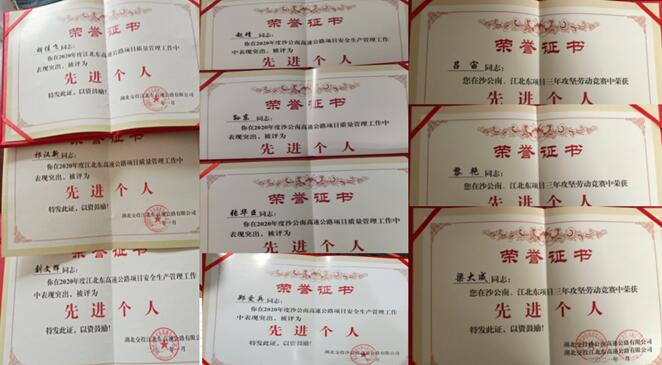 荣誉证书
同志:
你在2020年度江北东高速公路项目质量管理工作中
表现突出,被评为
先进个人
特发此证,以资鼓励!
湖北交投江北东高速公路有限公司
一月
祁汉新同志:
你在2020年度江北东高速公路项目质量管理工作中
表现突出,被评为
先进个人
特发此证,以资鼓励!
湖北交投江北东高速公路有限公司
一月
刘文辉同志:
你在2020年度江北东高速公路项目安全生产管理工作
中表现突出,被评为
先进个人
特发此证,以资鼓励!
湖北交投江北东高速公路有限公司
一月
荣誉证书
赵靖同志:
你在2020年度沙公南高速公路项目安全生产管理工作
中表现突出,被评为
先进个人
荣誉证书
孙东同志:
你在2020年度沙公南高速公路项目质量管理工作中
表现突出,被评为
先进个人
荣誉证书
张华臣同志:
你在2020年度沙公南高速公路项目质量管理工作中
表现突出,被评为
先进个人
荣誉证书
郑爱兵同志:
你在2020年度沙公南高速公路项目安全生产管理工作
中表现突出,被评为
先进个人
特发此证,以资鼓励!
湖北交投沙公南高速公路有限公司
一月
荣誉证书
吕宙同志:
您在沙公南、江北东项目三年攻坚劳动竞赛中荣获
先进个人
荣誉证书
黎艳同志:
您在沙公南、江北东项目三年攻坚劳动竞赛中荣获
先进个人
荣誉证书
梁大成同志:
您在沙公南、江北东项目三年攻坚劳动竞赛中荣获
先进个人
特发此证,以资鼓励!
湖北交投沙公南高速公路有限公司
湖北交投江北东高速公路有限公司
一月